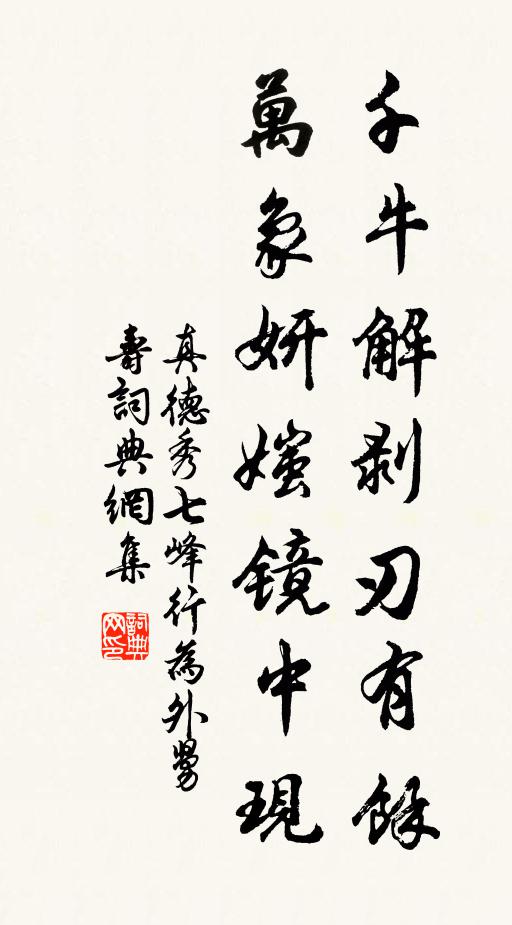 千牛解剥刃有餘
萬象妍媸镜中現
真德秀七峰行為外舅
壽詞典網集
詞典网印